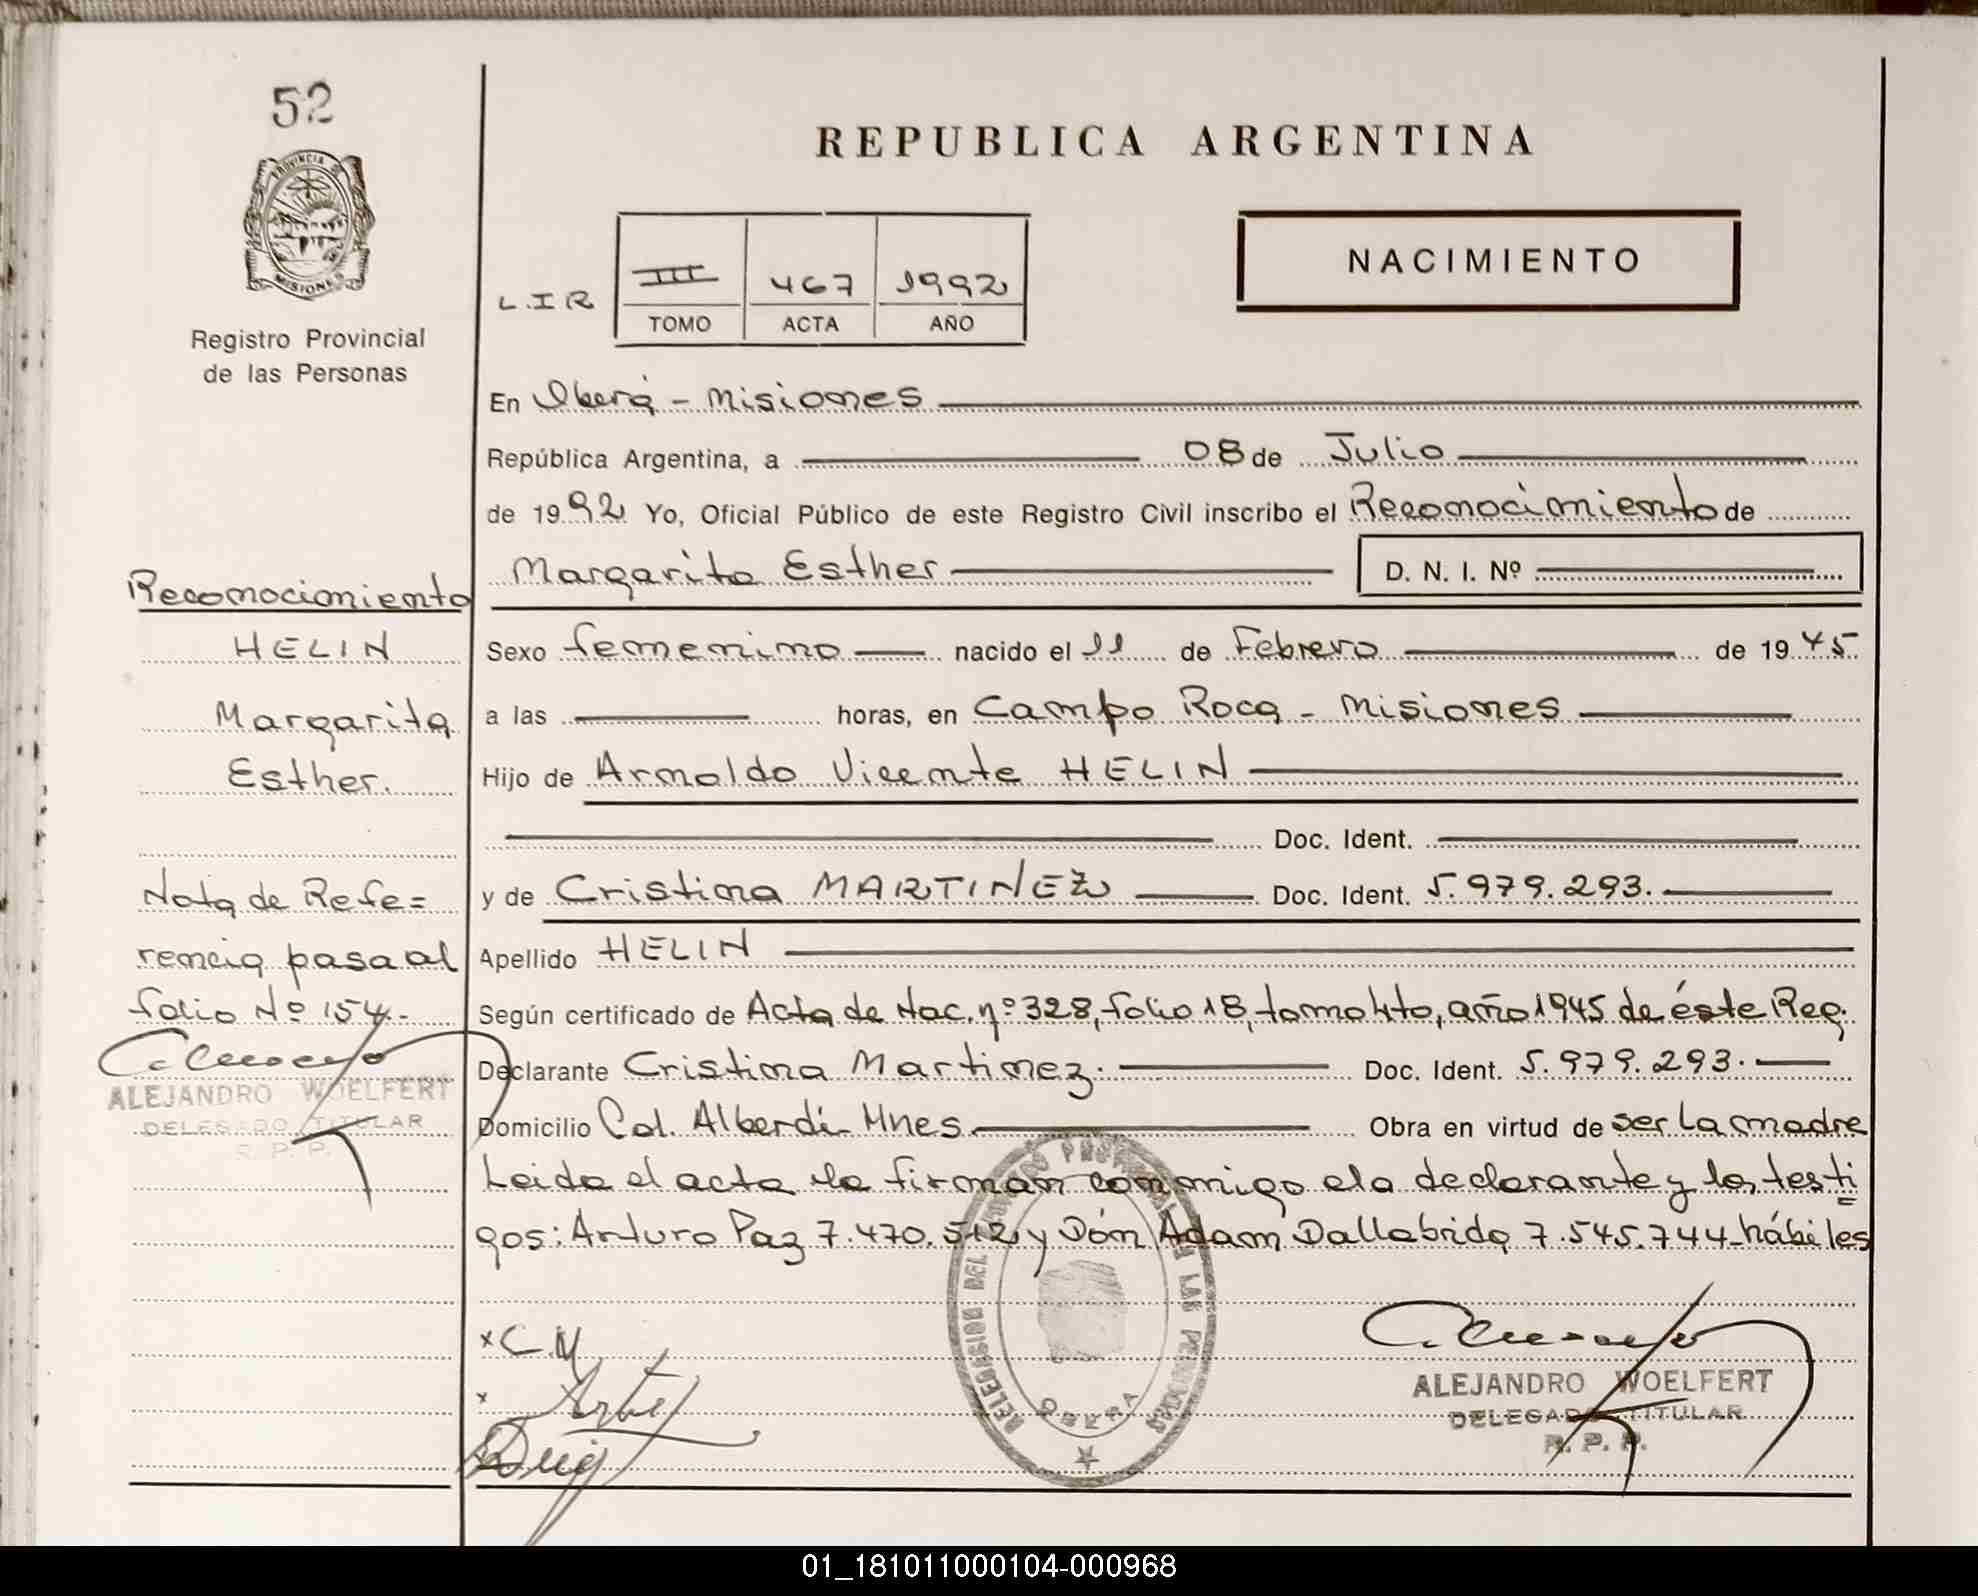 52
PROVINCIA DE
MISIONES
Registro Provincial
de las Personas
REPUBLICA ARGENTINA
NACIMIENTO
L.I R
III 467 1992
TOMO ACTA AÑO
En Oberá - Misiones
República Argentina, a 08 de Julio
de 1992 Yo, Oficial Público de este Registro Civil inscribo el Reconocimiento de
Margarita Esther D. N. I. Nº
Sexo femenino nacido el 11 de Febrero de 1945
a las horas, en Campo Roca - Misiones
Hijo de Arnoldo Vicente HELIN
Doc. Ident.
y de Cristina MARTINEZ Doc. Ident. 5.979.293.
Apellido HELIN
Según certificado de Acta de Nac. nº 328, folio 18, tomo 4to, año 1945 de éste Reg.
Declarante Cristina Martinez. Doc. Ident. 5.979.293.
Domicilio Col. Alberdi - Mnes Obra en virtud de ser la madre
Leida el acta la firman conmigo la declarante y los testi
gos: Arturo Paz 7.470.512 y Dón Adam Dallabrida 7.545.744 - hábiles
Reconocimiento
HELIN
Margarita
Esther.
Nota de Refe=
rencia pasa al
folio Nº 154.-
ALEJANDRO WOELFERT
DELEGADO TITULAR
R. P. P.
x C.M
x
DELEGACION DEL REGISTRO PROVINCIAL DE LAS PERSONAS
OBERA
ALEJANDRO WOELFERT
DELEGADO TITULAR
R. P. P.
01_181011000104-000968